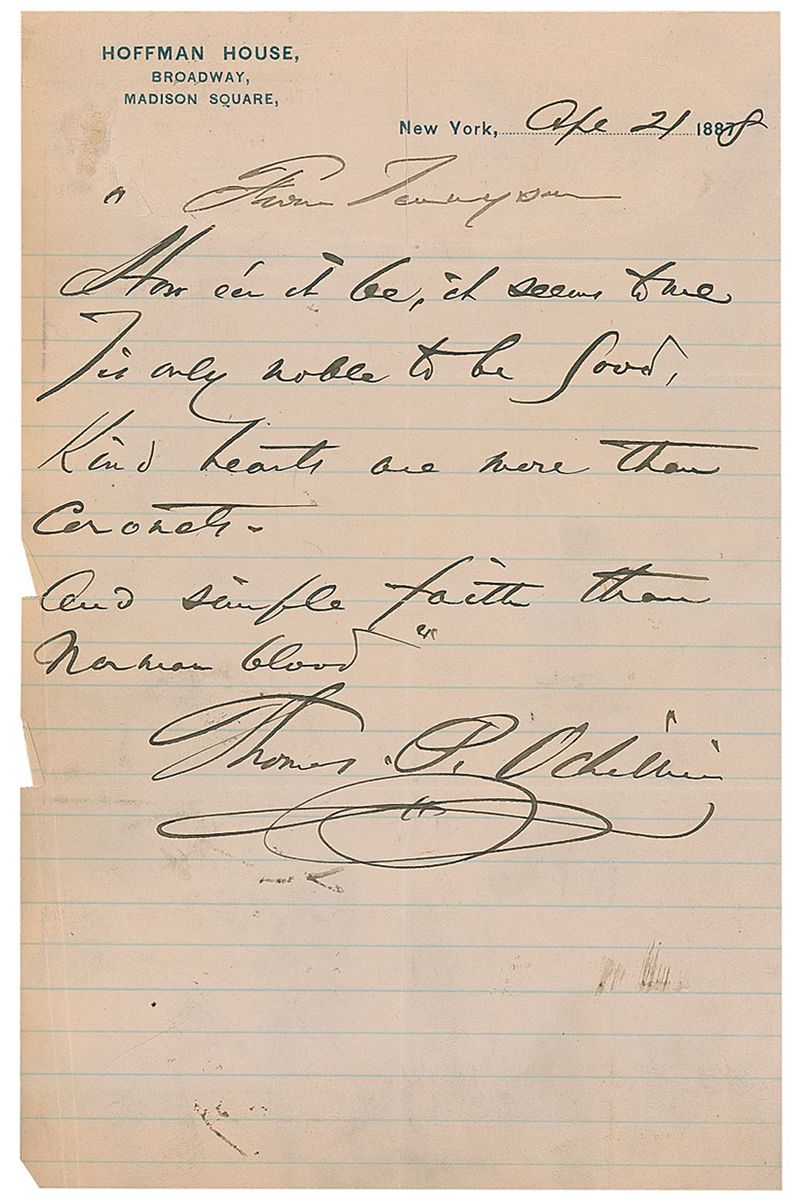 HOFFMAN HOUSE,
BROADWAY,
MADISON SQUARE,
New York, Apl 21 1888
" From Tennyson
How e'er it be, it seems to me
Tis only noble to be good,
Kind hearts are more than
Coronets -
And simple faith than
Norman blood "
Thomas P. Ochiltree